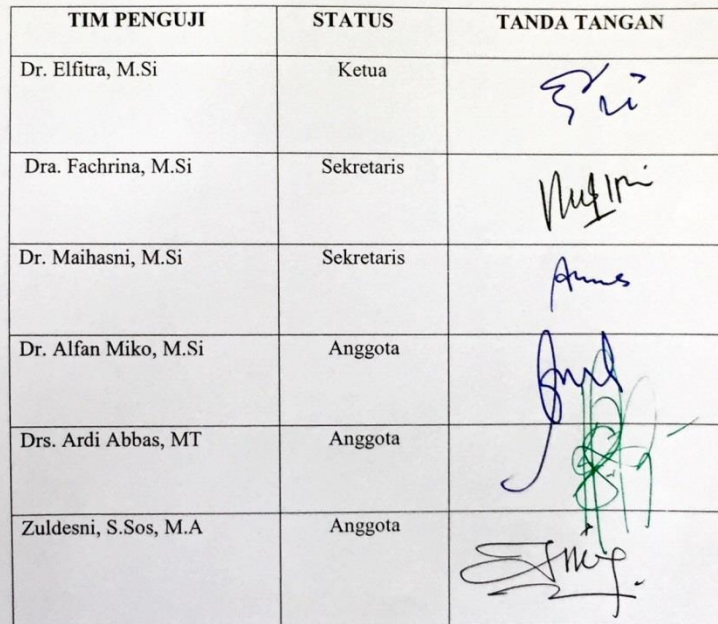 TIM PENGUJI STATUS TANDA TANGAN
Dr. Elfitra, M.Si Ketua
Dra. Fachrina, M.Si Sekretaris
Dr. Maihasni, M.Si Sekretaris
Dr. Alfan Miko, M.Si Anggota
Drs. Ardi Abbas, MT Anggota
Zuldesni, S.Sos, M.A Anggota